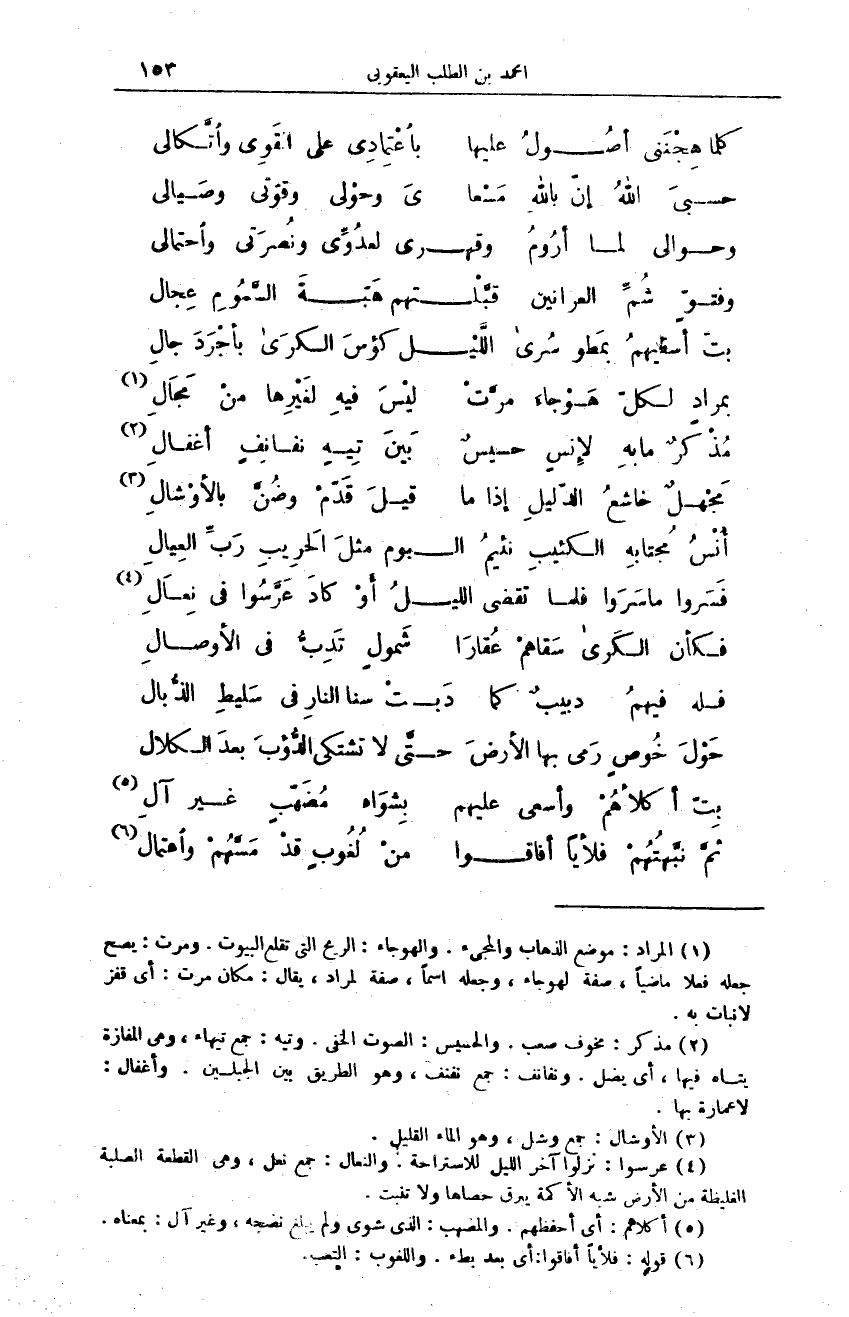 احمد بن الطلب اليعقوبى ١٥٣
كلما هِجْنَنى أصُـــولُ عليها بأعْتِمادِى على القَوِى وأتَّـكالى
حسـبىَ اللهُ إنّ باللهِ مَسْعا ىَ وحوْلى وقوّتى وصَـيالى
وحـوالى لمـا أرُومُ وقهـرى لعدُوِّى ونُصرَتى وأحتمالى
وفتوّ شُمِّ العرانين قبَّلْـــتهم هَبَّـــةَ السَّمُومِ عِجال
بتّ أسقيهمُ بمَطو سُرىٰ اللَّيْـــل كؤسَ الـكرَىٰ بأجْرَدَ جالِ
بمرادٍ لـكلّ هَـوْجاءَ مرَّتْ ليْسَ فيهِ لغَيْرِها منْ مَجَالِ (١)
مُذْكرٌ مابهِ لإنسٍ حسيسٌ بَينَ تِيـهٍ نفـانِفٍ أغفـالِ (٢)
مَجْهـلٌ خاشعُ الدّليلِ إذا ما قيـلَ قَدّمْ وضُنَّ بالأوْشالِ (٣)
أُنْسُ مُجتابهِ الـكئيبِ نئيمُ الـــبوم مثلَ الحَرِيبِ رَبِّ العِيالِ
فَسَروا ماسَرَوا فلمـا تقضى الليـــلُ أوْ كادَ عَرَّسُوا فى نِعـَالِ (٤)
فـكأن الـكَرىٰ سَقاهمْ عُقارَا شَمولٍ تَدِبُّ فى الأوصـالِ
فـله فيهمُ دبيبٌ كما دَبـتْ سنا النارِ فى سَليطِ الذُّبال
حَوْلَ خُوصٍ رَمى بها الأرضَ حــتَّى لا تشتكى الدُّؤبَ بعدَ الـكلال
بِتّ أكلأهُمْ وأسعى عليهم بِشِوَاه مُضَهّبٍ غــير آلِ (٥)
ثمَّ نبَّهتُهُمْ فلأياً أفاقــوا منْ لُغُوبٍ قدْ مَسَّهُمْ وأعتمال (٦)
(١) المراد : موضع الذهاب والمجىء . والهوجاء : الريح التى تقلع البيوت . ومرت : يصح
جعله فعلا ماضياً ، صفة لهوجاء ، وجعله اسماً ، صفة لمراد ، يقال : مكان مرت : أى قفز
لانبات به .
(٢) مذكر : مخوف صعب . والحسيس : الصوت الخفى . وتيه : جمع تيهاء ، وهى المفازة
يتـاه فيها ، أى يضل . ونفانف : جمع نفنف ، وهو الطريق بين الجبلـين . وأغفال :
لاعمارة بها .
(٣) الأوشال : جمع وشل ، وهو الماء القليل .
(٤) عرسوا : نزلوا آخر الليل للاستراحة . والنعال : جمع نعل ، وهى القطعة الصلبة
الغليظة من الأرض شبه الأكمة يبرق حصاها ولا تنبت .
(٥) أكلاهم : أى أحفظهم . والمضهب : الذى شوى ولم يبلغ نضجه ، وغير آل : بمعناه .
(٦) قوله : فلأياً أفاقوا : أى بعد بطء . واللغوب : التعب .